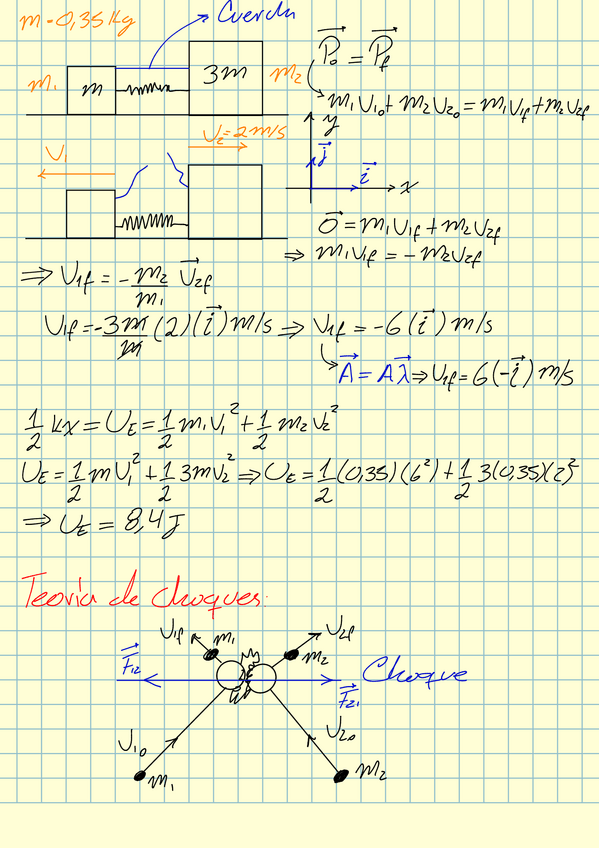 m = 0,35 Kg
Cuerda
m₁ m 3m m₂
P⃗₀ = P⃗f
m₁U₁₀ + m₂U₂₀ = m₁U₁f + m₂U₂f
U₁ U₂ = 2 m/s
y
j⃗
i⃗ x
0⃗ = m₁U₁f + m₂U₂f
⇒ m₁U₁f = - m₂U₂f
⇒ U₁f = - m₂/m₁ U⃗₂f
U₁f = - 3m/m (2)(i⃗) m/s ⇒ U₁f = -6 (i⃗) m/s
A⃗ = Aλ⃗ ⇒ U₁f = 6(-i⃗) m/s
1/2 kx = U_E = 1/2 m₁v₁² + 1/2 m₂v₂²
U_E = 1/2 mU₁² + 1/2 3mv₂² ⇒ U_E = 1/2 (0,35)(6²) + 1/2 3(0,35)(2)²
⇒ U_E = 8,4 J
Teoría de choques:
U₁f m₁ U₂f
m₂
F⃗₁₂ Choque
F⃗₂₁
U₁₀ U₂₀
m₁ m₂